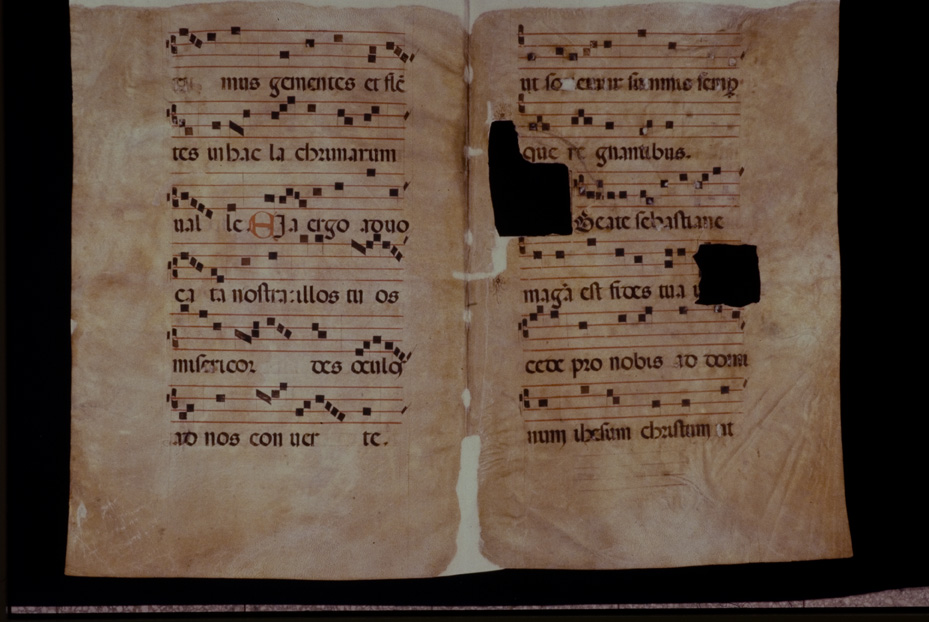 mus gementes et flē
tes in hac la chrimarum
ual le. Eja ergo aduo
ca ta nostra: illos tu os
misericor des oculos
ad nos con uer te.
ut
que re gnantibus.
Beate sebastiane
magā est fides tua
cede pro nobis ad domi
num ihesum christum ut